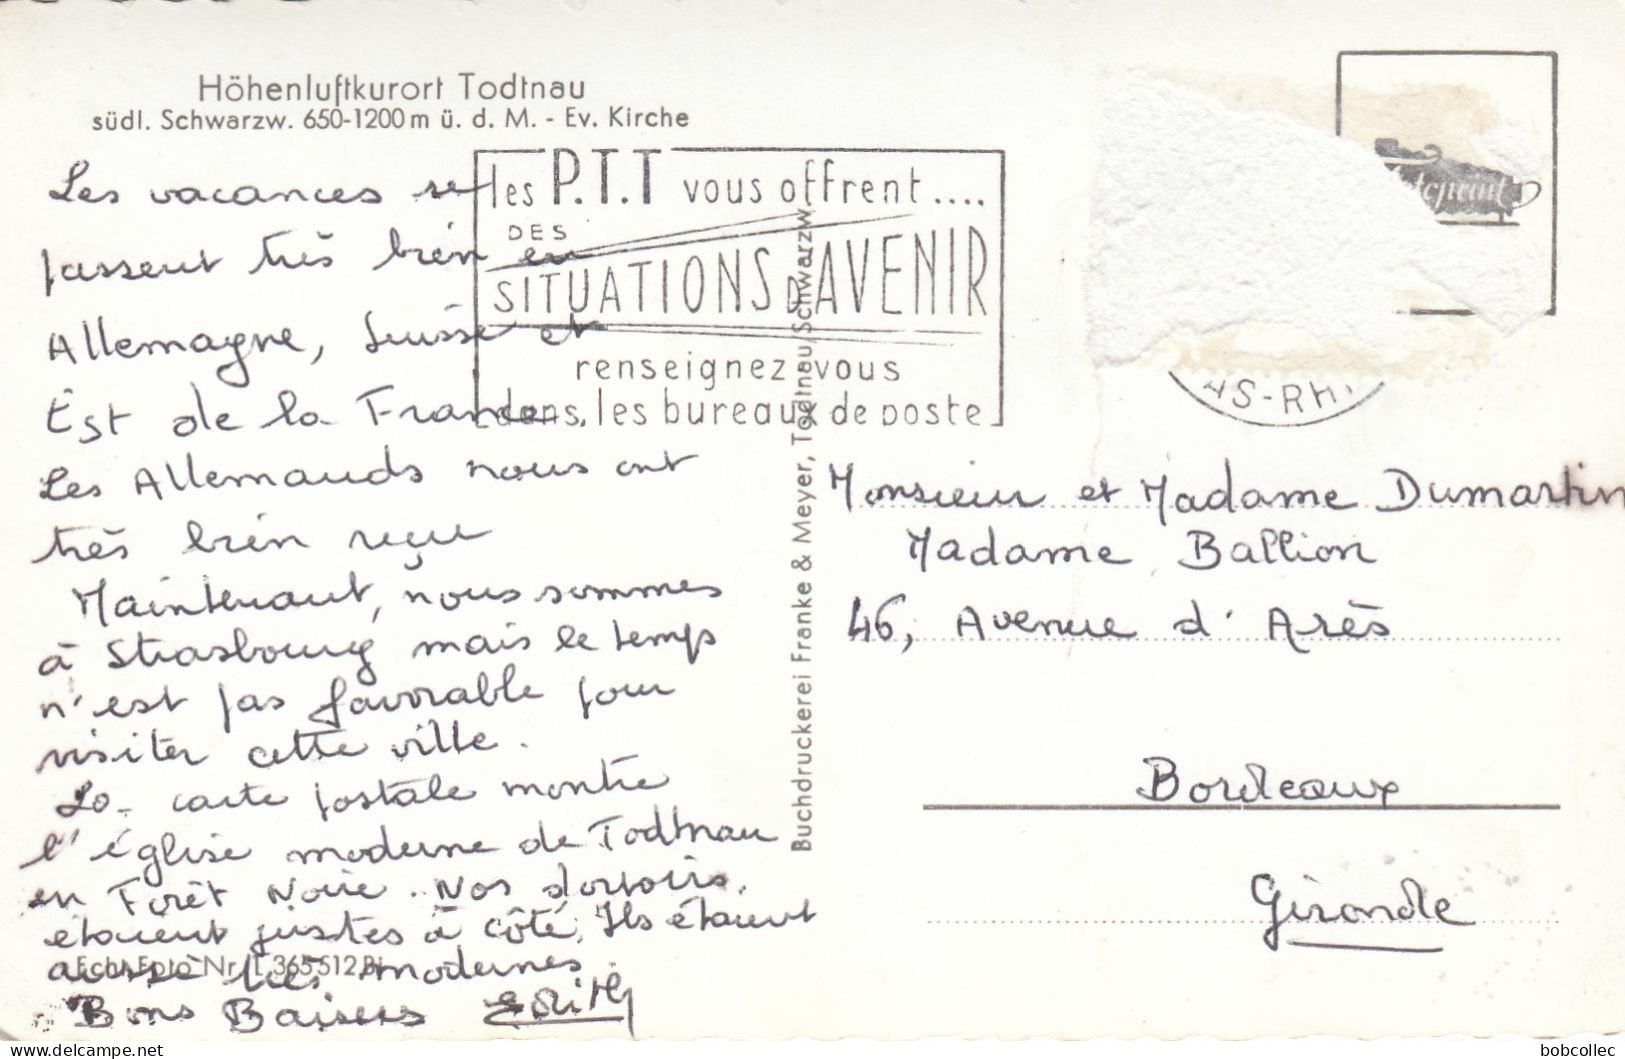 Höhenluftkurort Todtnau
südl. Schwarzw. 650-1200 m ü. d. M. - Ev. Kirche
Les vacances se
passent très bien en
Allemagne, Suisse et
Est de la France.
Les Allemands nous ont
très bien reçu
Maintenant, nous sommes
à Strasbourg mais le temps
n'est pas favorable pour
visiter cette ville.
La carte postale montre
l'église moderne de Todtnau
en Forêt Noire. Nos dortoirs
étaient justes à côté. Ils étaient
aussi très modernes.
Echt Foto Nr. L 365512 Bi
Bons Baisers Edith
les P.T.T vous offrent....
DES
SITUATIONS D'AVENIR
renseignez vous
dans les bureaux de poste
Buchdruckerei Franke & Meyer, Todtnau/Schwarzw.
AS-RHI
Monsieur et Madame Dumartin
Madame Ballion
46, Avenue d'Arès
Bordeaux
Gironde
bobcollec